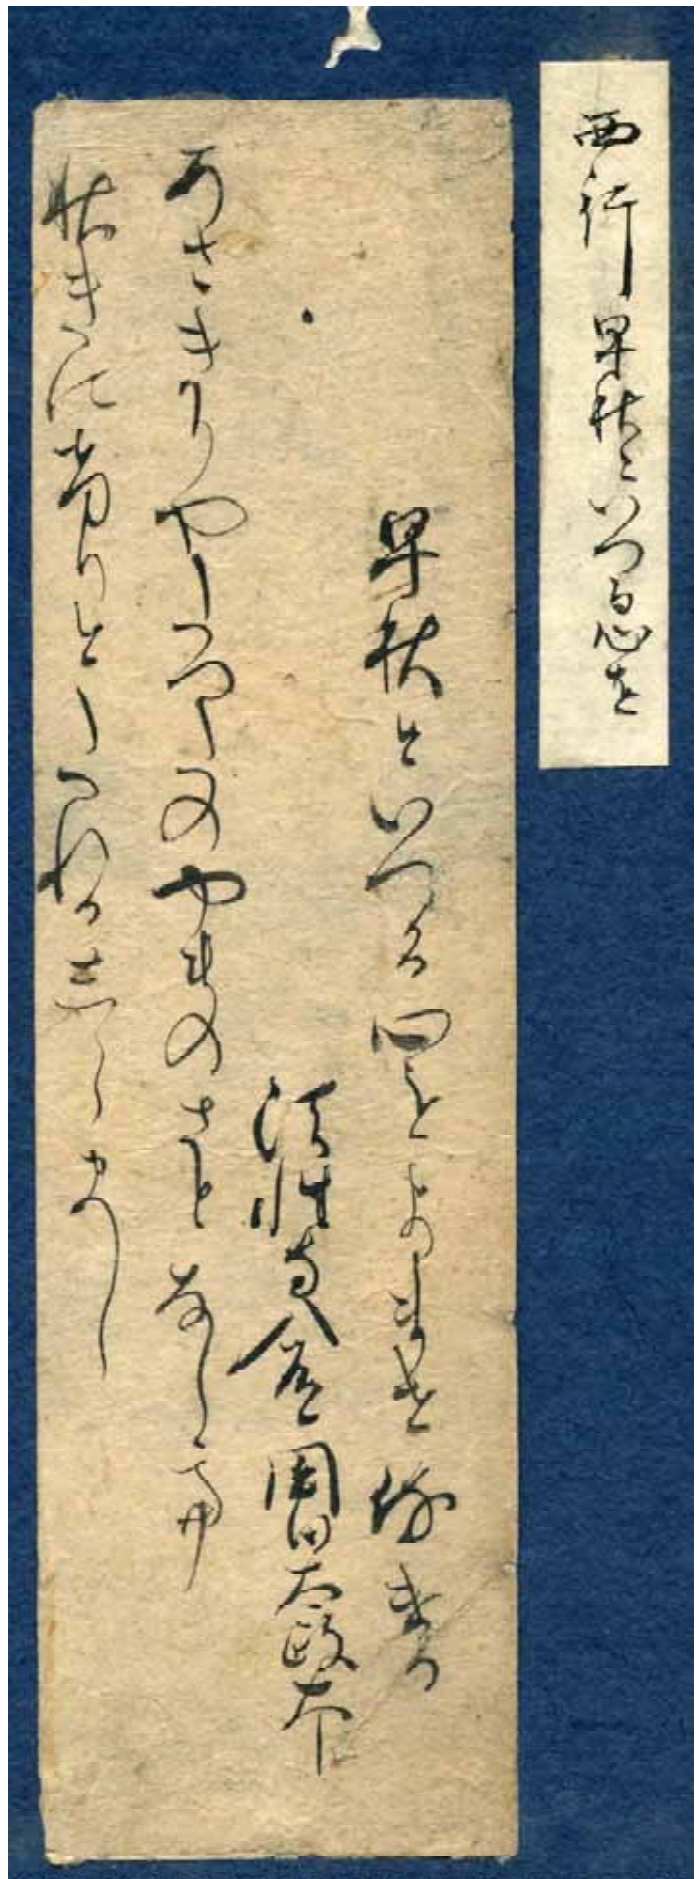 西行 早秋といへる心を
早秋といへる心をよませ侍ける
法性寺入道関白太政大臣
あさきりやたつたのやまのさとならて
秋きにけりとたれかしらまし